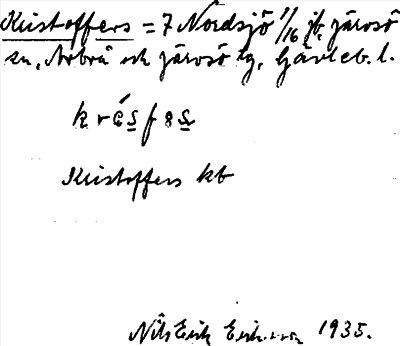 Kristoffers = 7 Nordsjö 1/16 jb, Järvsö
sn, Arbrå och Järvsö tg, Gävleb. l.
Kristoffers kb
Nils Erik Eriksson 1935.